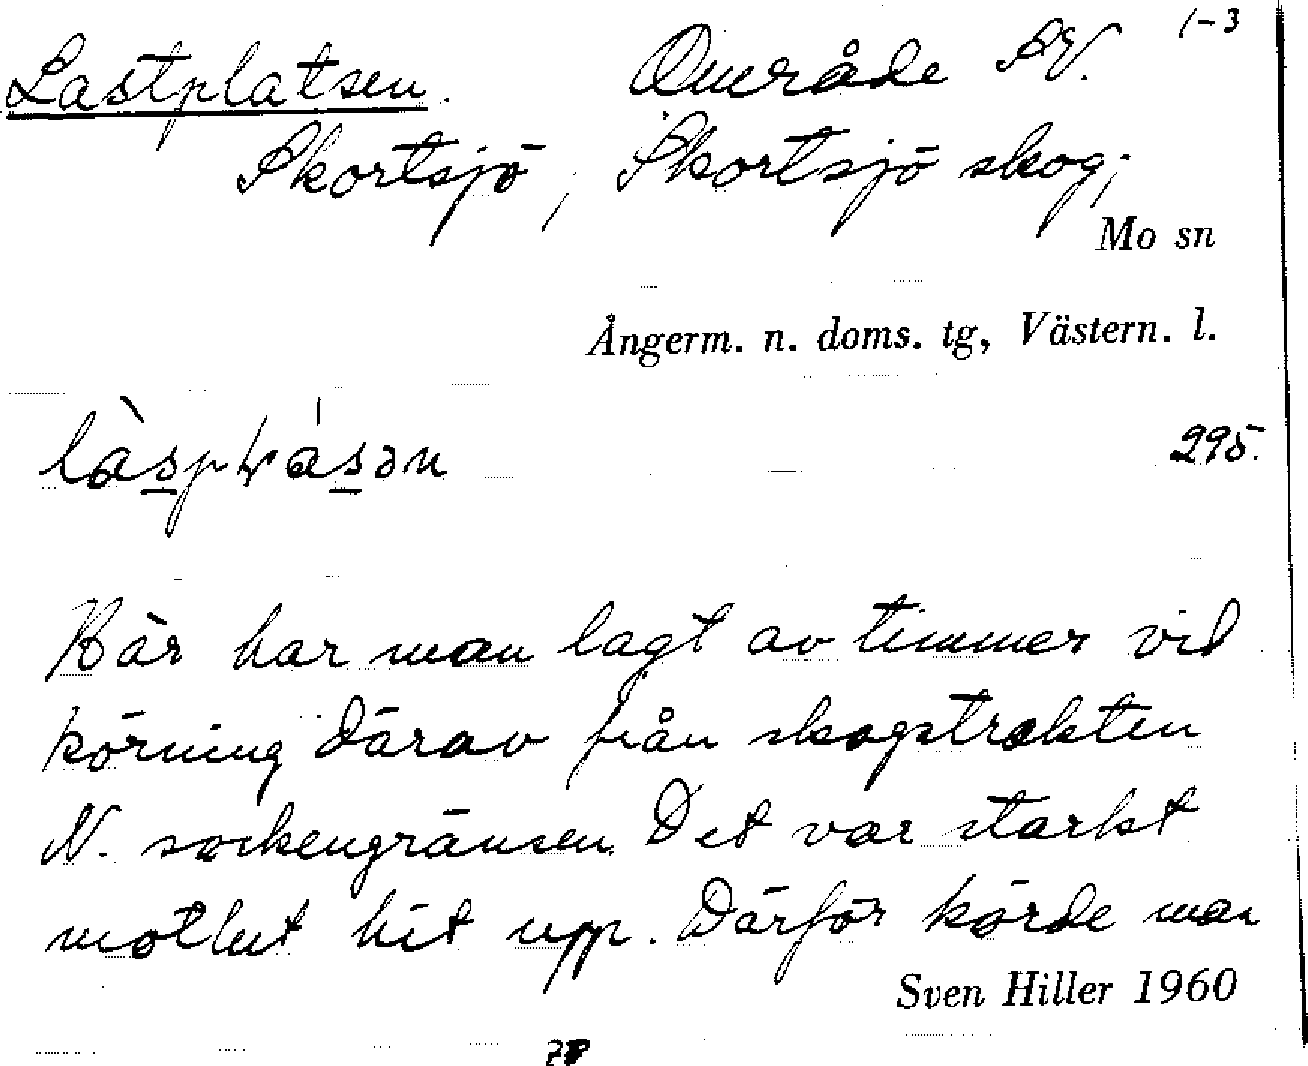 1-3
Lastplatsen. Område SV.
Skortsjö, Skortsjö skog;
Mo sn
Ångerm. n. doms. tg, Västern. l.
295.
Här har man lagt av timmer vid
körning därav från skogstrakten
N. sockengränsen. Det var starkt
motlut hit upp. Därför körde man
Sven Hiller 1960